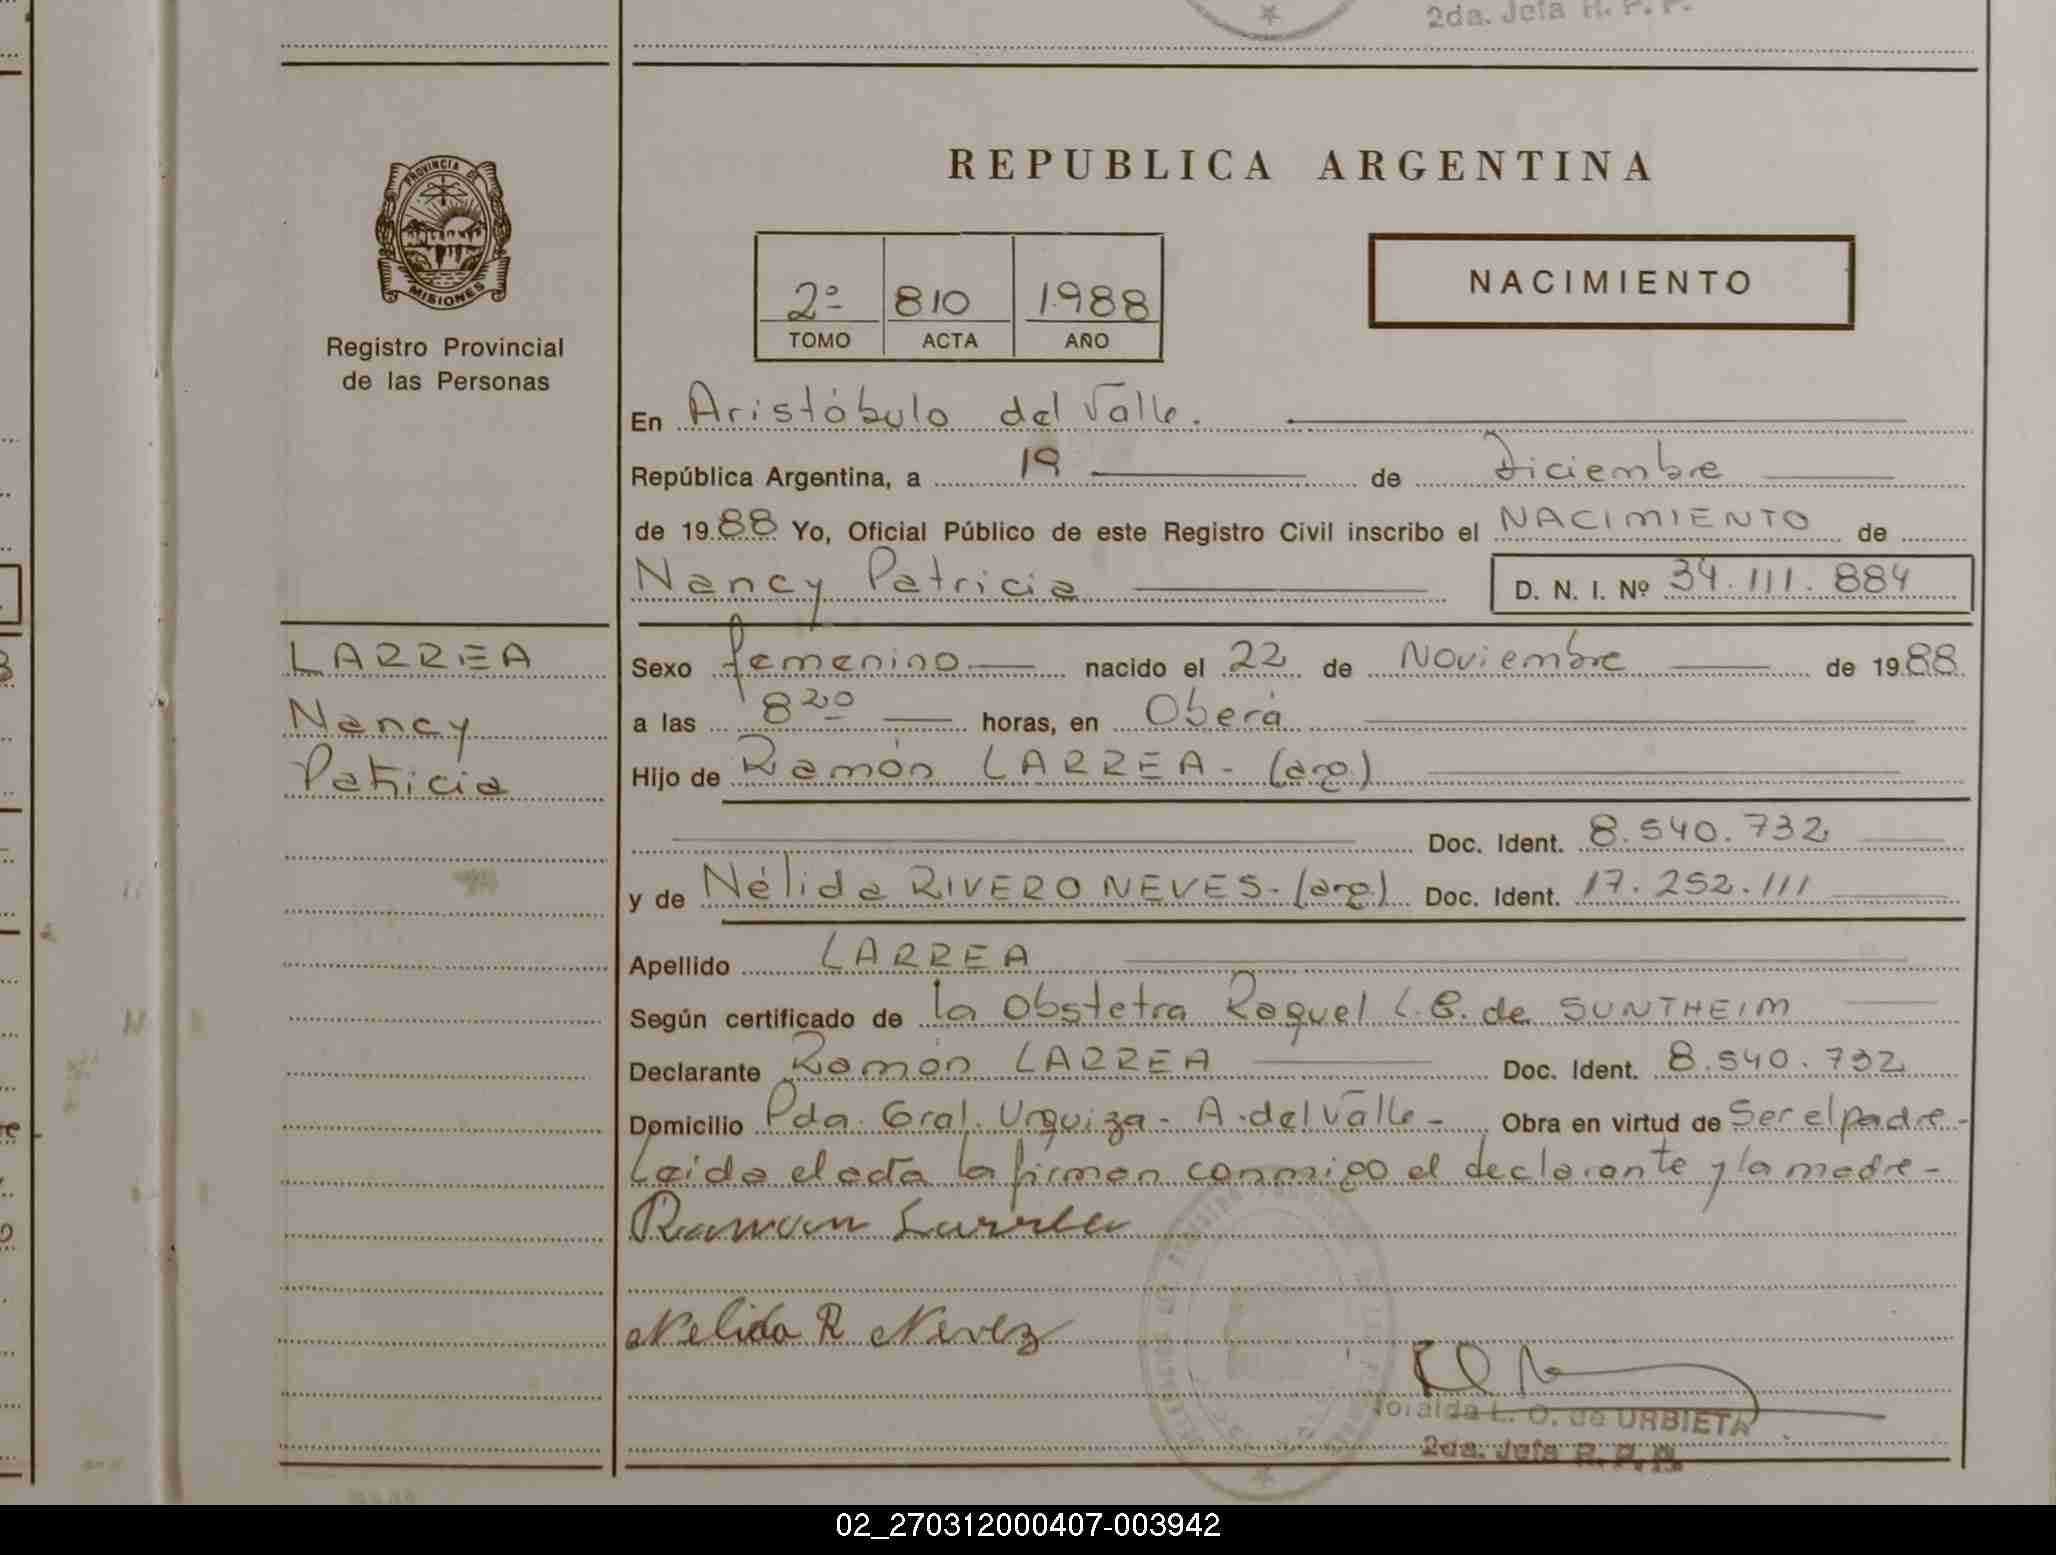 2da. Jefa R. P. P.
REPUBLICA ARGENTINA
PROVINCIA DE
MISIONES
Registro Provincial
de las Personas
2º 810 1988
TOMO ACTA AÑO
NACIMIENTO
En Aristóbulo del Valle.
República Argentina, a 19 de Diciembre
de 1988 Yo, Oficial Público de este Registro Civil inscribo el NACIMIENTO de
Nancy Patricia D. N. I. Nº 34.111.884
LARREA
Nancy
Patricia
Sexo femenino nacido el 22 de Noviembre de 1988
a las 8 20 horas, en Oberá
Hijo de Ramón LARREA - (arg)
Doc. Ident. 8.540.732
y de Nélida RIVERO NEVES - (arg) Doc. Ident. 17.252.111
Apellido LARREA
Según certificado de la Obstetra Raquel L. B. de SUNTHEIM
Declarante Ramón LARREA Doc. Ident. 8.540.732
Domicilio Pda. Gral. Urquiza - A. del Valle - Obra en virtud de Ser el padre -
Leida el acta la firman conmigo el declarante y la madre -
Ramon Larrea
Nelida R Nevez
L. O. de URBIETA
2da. Jefa R. P. P.
02_270312000407-003942